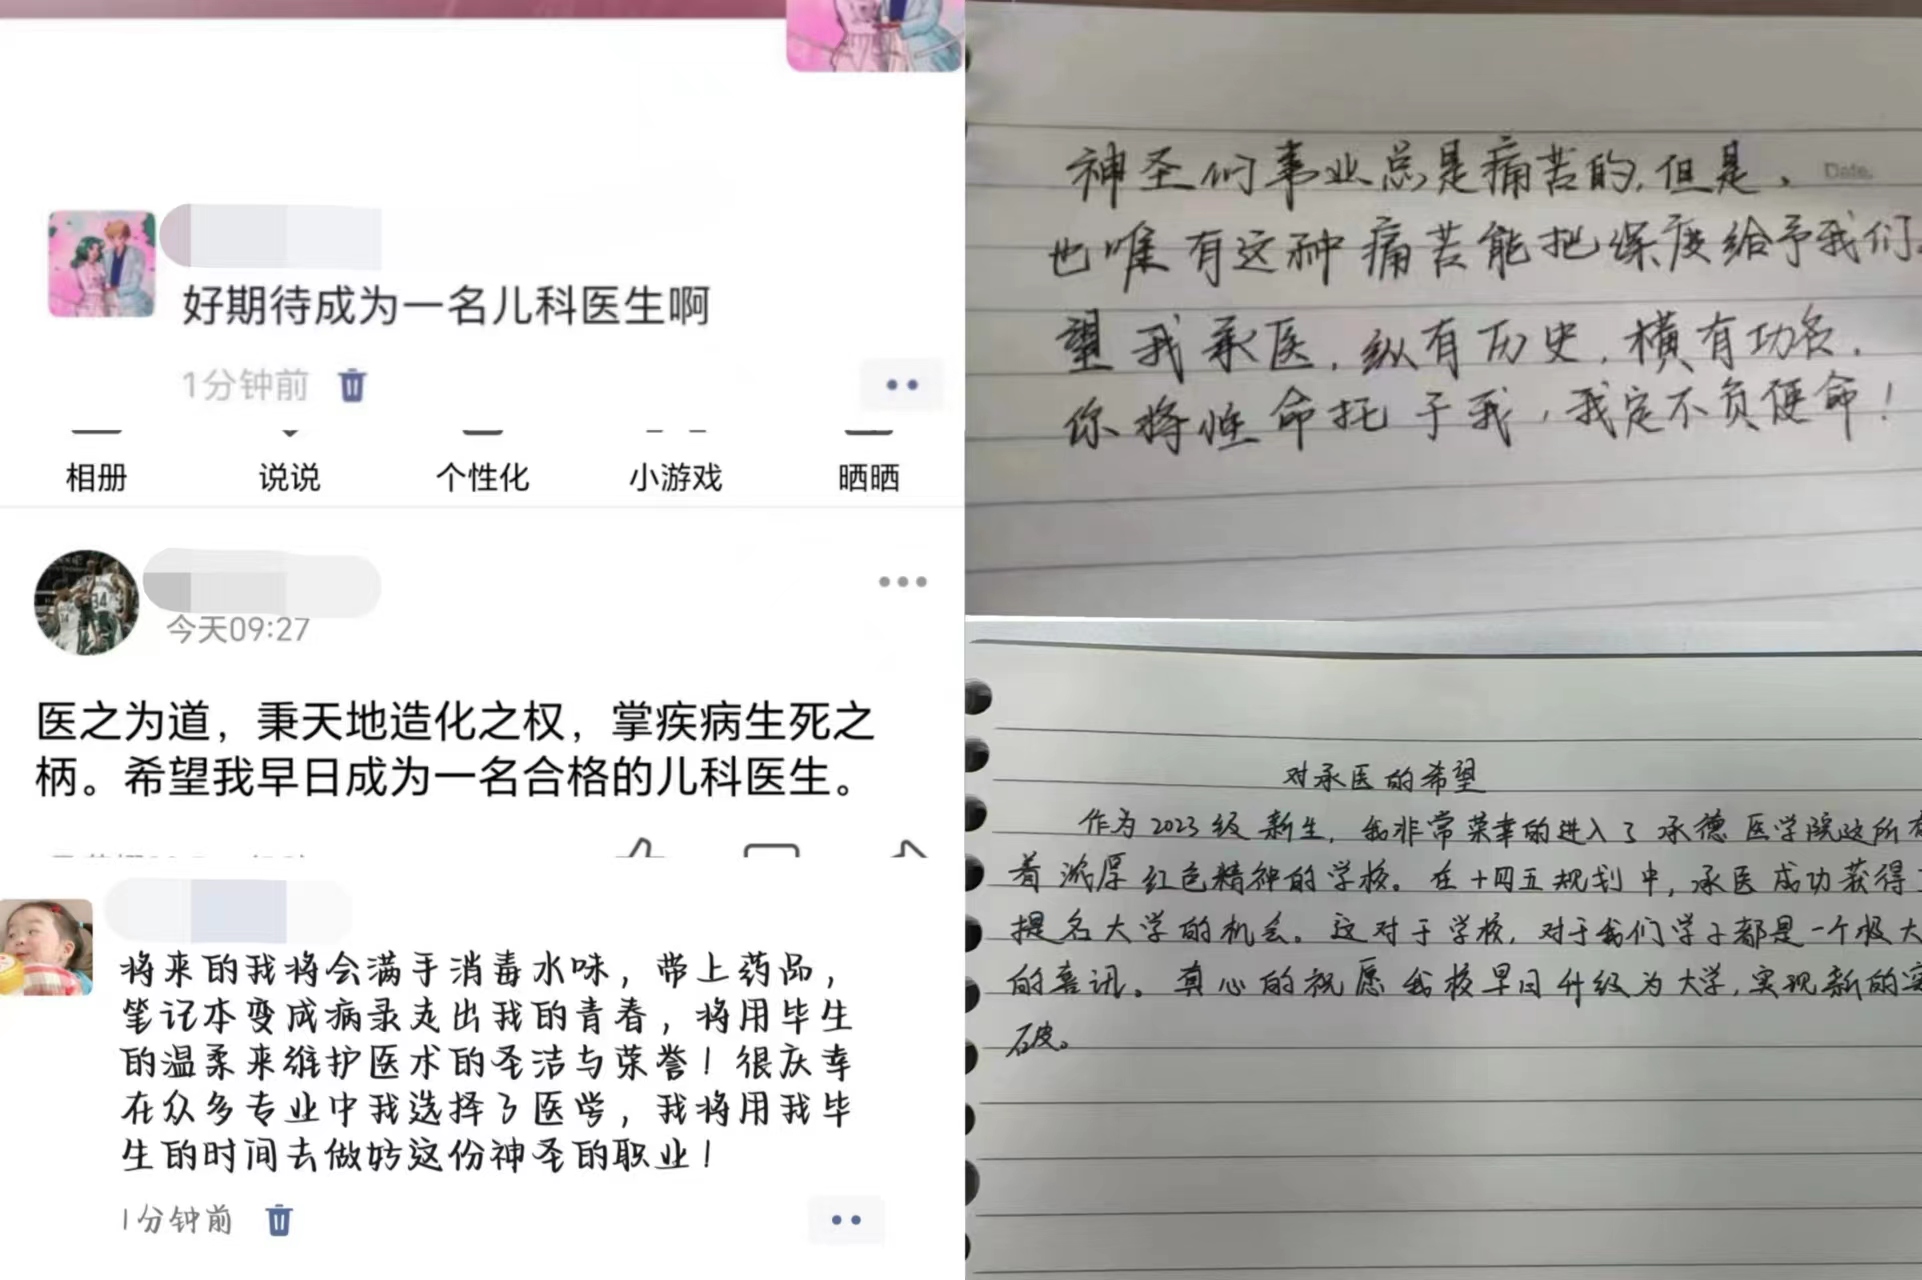 好期待成为一名儿科医生啊
1分钟前
相册 说说 个性化 小游戏 晒晒
今天09:27
医之为道，秉天地造化之权，掌疾病生死之
柄。希望我早日成为一名合格的儿科医生。
将来的我将会满于消毒水味，带上药品，
笔记本变成病录走出我的青春，将用毕生
的温柔来维护医术的圣洁与荣誉！很庆幸
在众多专业中我选择了医学，我将用我毕
生的时间去做好这份神圣的职业！
1分钟前
Date.
神圣们事业总是痛苦的，但是，
也唯有这种痛苦能把深度给予我们。
望我承医，纵有历史，横有功名，
你将性命托于我，我定不负使命！
对承医的希望
作为2023级新生，我非常荣幸的进入了承德医学院这所有
着浓厚红色精神的学校。在十四五规划中，承医成功获得
提名大学的机会。这对于学校，对于我们学子都是一个极大
的喜讯。真心的祝愿我校早日升级为大学，实现新的突
破。